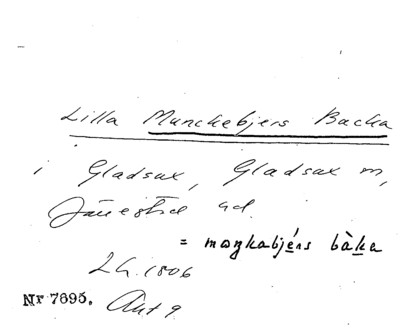 Lilla Munckebjers Backa
i Gladsax, Gladsax sn,
Järrestad hd.
= moŋkabjéns bàka
LH. 1806
Nr 7695. Akt 9